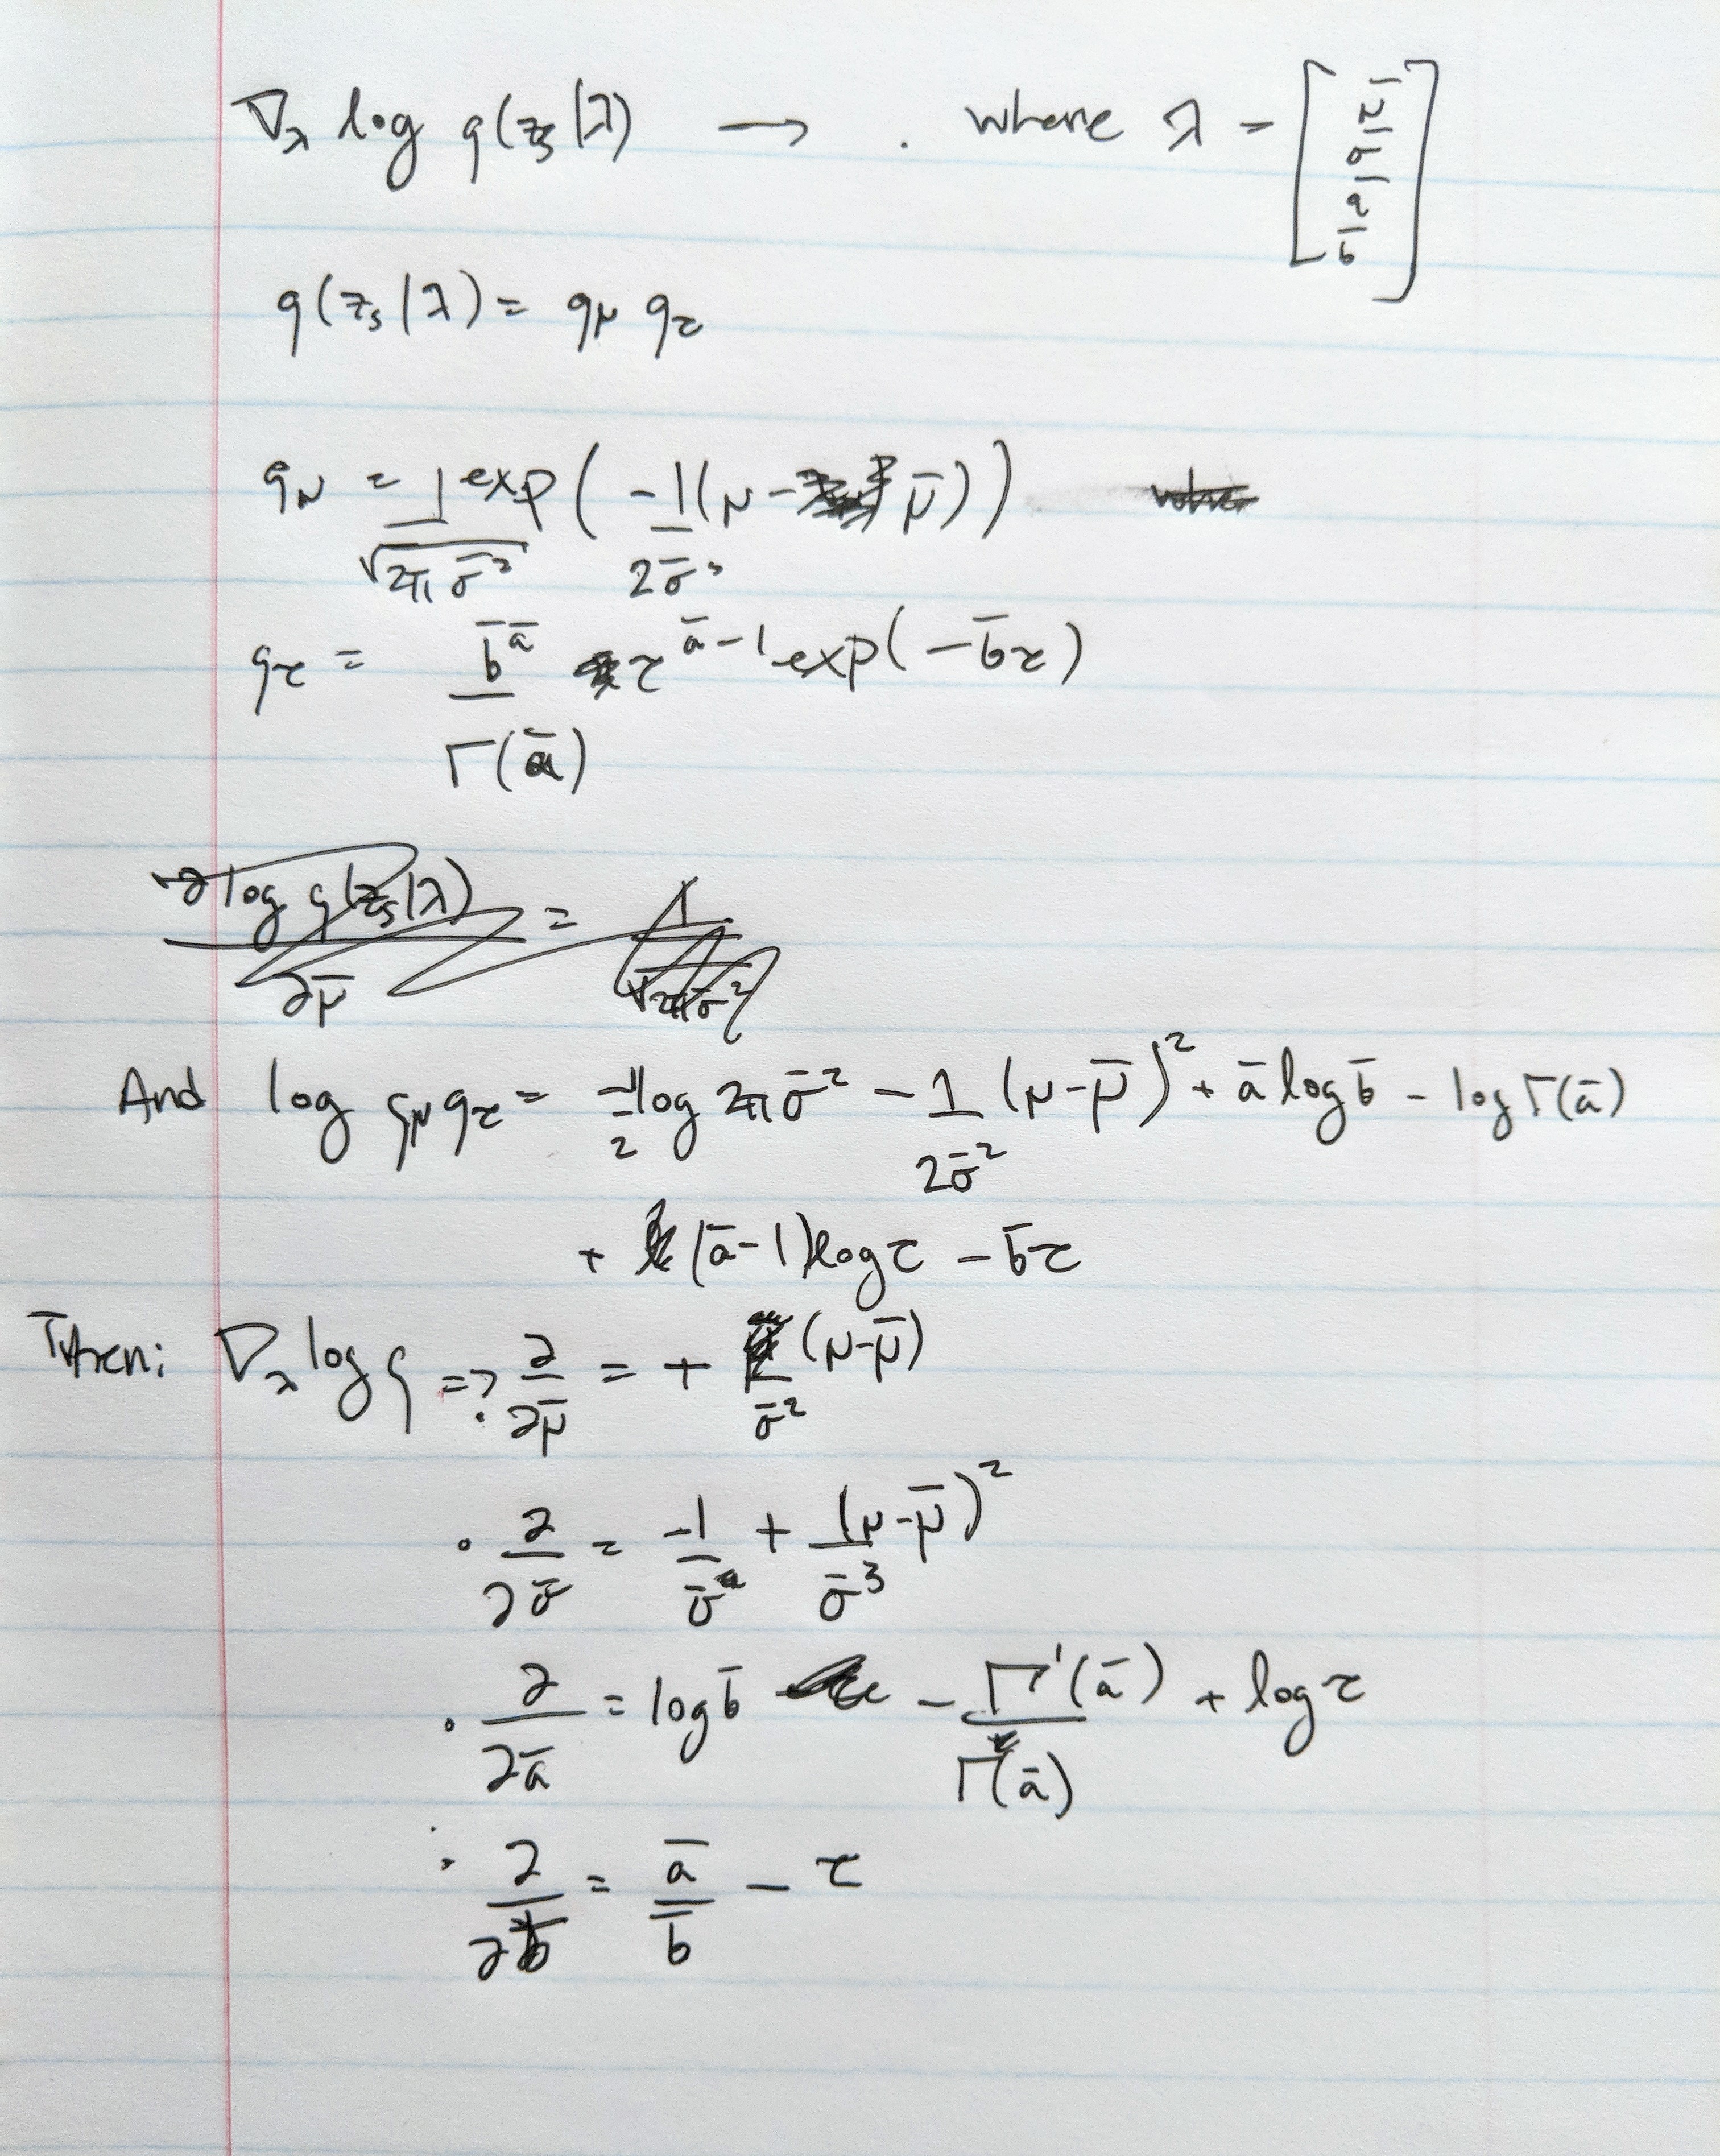 ∇_λ log q(z_s|λ) → . where λ = [μ̄ σ̄ ā b̄]
q(z_s|λ) = q_μ q_τ
q_μ = 1/√(2πσ̄²) exp(-1/(2σ̄²) (μ - μ̄))
q_τ = b̄^ā/Γ(ā) τ^(ā-1) exp(-b̄τ)
∂ log q(z_s|λ)/∂μ̄ = 1/√(2πσ̄²)
And log q_μ q_τ = -1/2 log 2πσ̄² - 1/(2σ̄²) (μ-μ̄)² + ā log b̄ - log Γ(ā)
+ (ā-1) log τ - b̄τ
Then: ∇_λ log q => : ∂/∂μ̄ = + (μ-μ̄)/σ̄²
• ∂/∂σ̄ = -1/σ̄ + (μ-μ̄)²/σ̄³
• ∂/∂ā = log b̄ - Γ'(ā)/Γ(ā) + log τ
• ∂/∂b̄ = ā/b̄ - τ